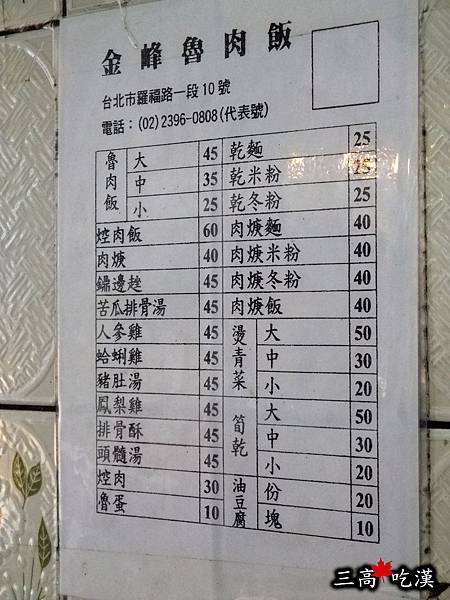 金峰魯肉飯
台北市羅福路一段10號
電話：(02)2396-0808(代表號)
魯肉飯 大 45 乾麵 25
中 35 乾米粉 25
小 25 乾冬粉 25
焢肉飯 60 肉焿麵 40
肉焿 40 肉焿米粉 40
鏽邊趖 45 肉焿冬粉 40
苦瓜排骨湯 45 肉焿飯 40
人參雞 45 燙青菜 大 50
蛤蜊雞 45 中 30
豬肚湯 45 小 20
鳳梨雞 45 筍乾 大 50
排骨酥 45 中 30
頭髓湯 45 小 20
焢肉 30 油豆腐 份 20
魯蛋 10 塊 10
三高吃漢